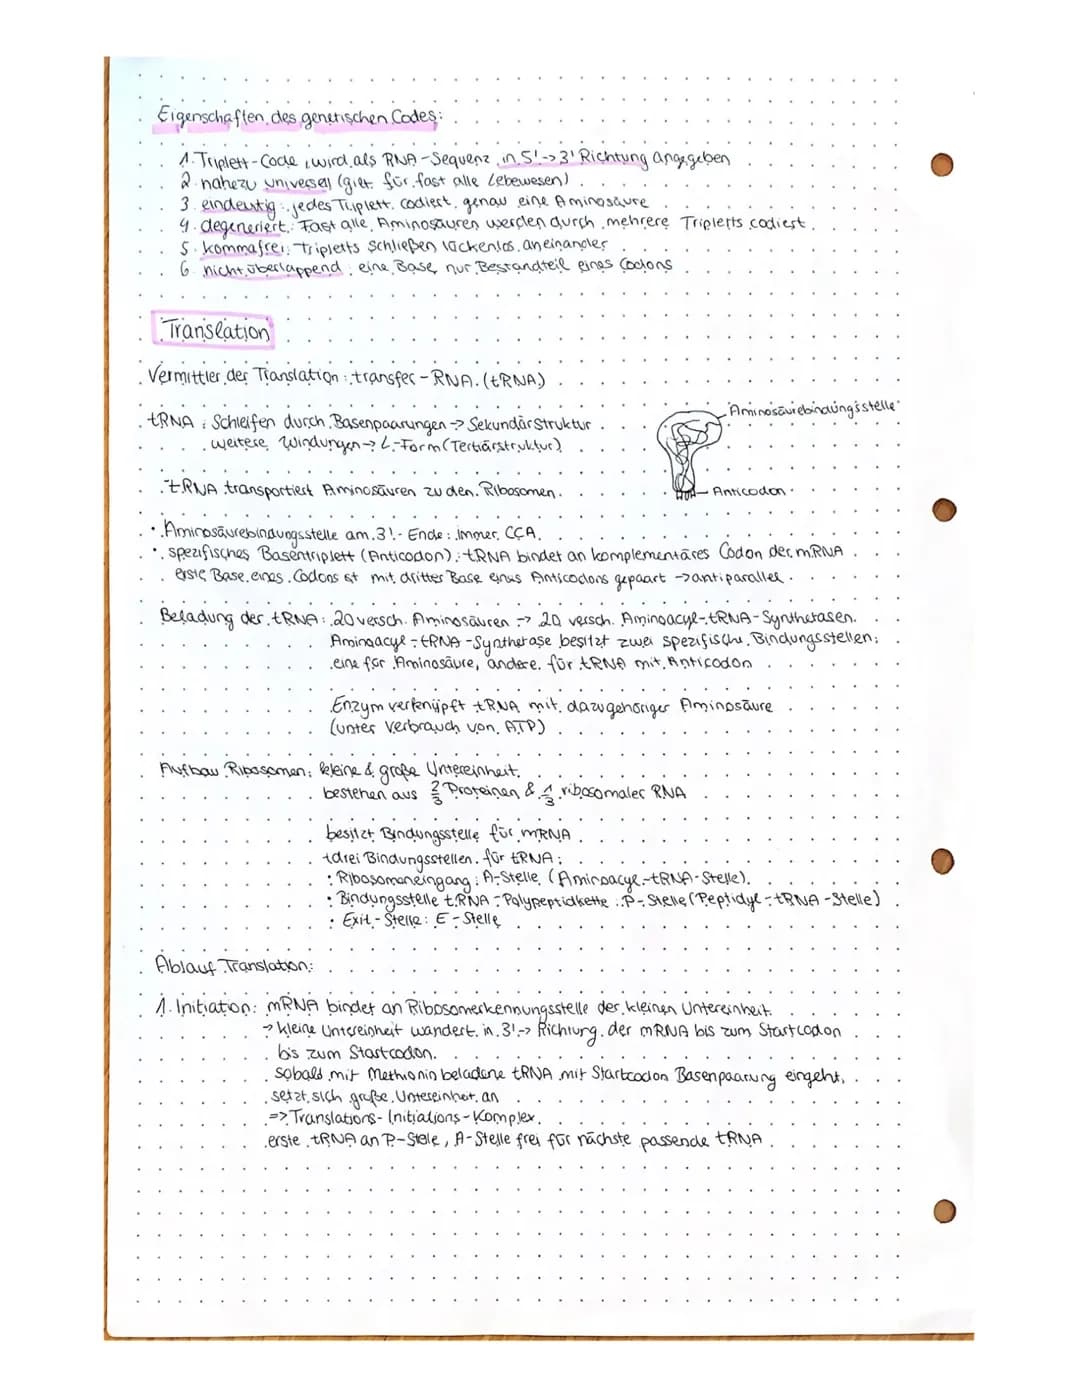 Eigenschaften des genetischen Codes:
1. Triplett-Code, wird als RNA-Sequenz in 5'->3' Richtung angegeben
2. nahezu universell (gilt für fast alle Lebewesen)
3. eindeutig: jedes Triplett codiert genau eine Aminosäure
4. degeneriert: Fast alle Aminosäuren werden durch mehrere Tripletts codiert
5. kommafrei: Tripletts schließen lückenlos aneinander
6. nicht überlappend: eine Base nur Bestandteil eines Codons
Translation
Vermittler der Translation: transfer-RNA (tRNA)
Aminosäurebindungsstelle
tRNA: Schleifen durch Basenpaarungen -> Sekundärstruktur
weitere Windungen -> L-Form (Tertiärstruktur)
tRNA transportiert Aminosäuren zu den Ribosomen.
Anticodon
• Aminosäurebindungsstelle am 3'-Ende: immer CCA
• spezifisches Basentriplett (Anticodon): tRNA bindet an komplementäres Codon der mRNA
erste Base eines Codons ist mit dritter Base eines Anticodons gepaart -> antiparallel
Beladung der tRNA: 20 versch. Aminosäuren -> 20 versch. Aminoacyl-tRNA-Synthetasen
Aminoacyl-tRNA-Synthetase besitzt zwei spezifische Bindungsstellen:
eine für Aminosäure, andere für tRNA mit Anticodon
Enzym verknüpft tRNA mit dazugehöriger Aminosäure
(unter Verbrauch von ATP)
Aufbau Ribosomen: kleine & große Untereinheit
bestehen aus 2/3 Proteinen & 1/3 ribosomaler RNA
besitzt Bindungsstelle für mRNA
+drei Bindungsstellen für tRNA:
• Ribosomeneingang: A-Stelle (Aminoacyl-tRNA-Stelle)
• Bindungsstelle tRNA-Polypeptidkette: P-Stelle (Peptidyl-tRNA-Stelle)
• Exit-Stelle: E-Stelle
Ablauf Translation:
1. Initiation: mRNA bindet an Ribosomerkennungsstelle der kleinen Untereinheit
-> kleine Untereinheit wandert in 3'-> Richtung der mRNA bis zum Startcodon
bis zum Startcodon.
sobald mit Methionin beladene tRNA mit Startcodon Basenpaarung eingeht,
setzt sich große Untereinheit an
=> Translations-Initiations-Komplex
erste tRNA an P-Stelle, A-Stelle frei für nächste passende tRNA